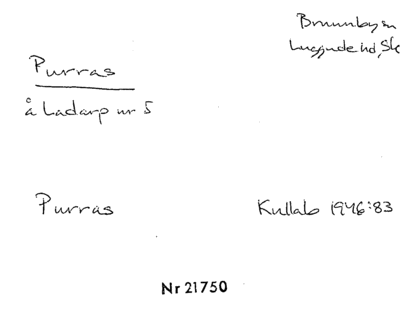 Brunnby sn
Luggude hd, Sk
Purras
å Ladarp nr 5
Purras
Kullab 1946:83
Nr 21750